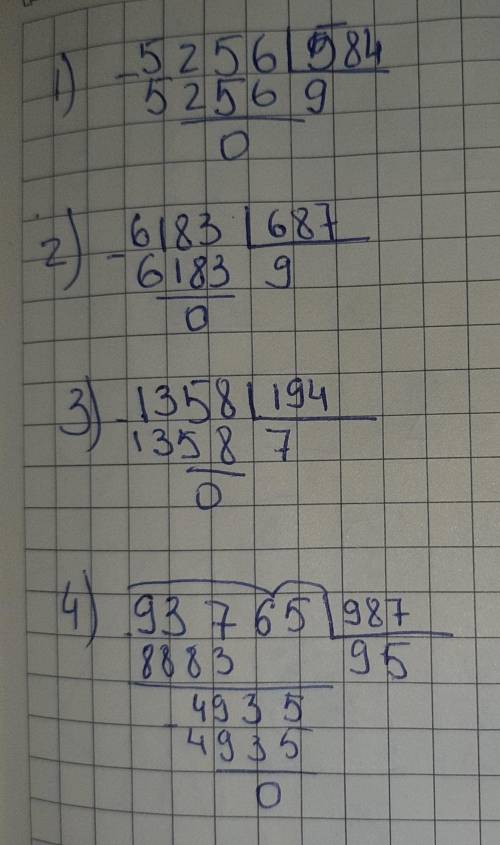 1) - 5256 | 584
5256 9
0
2) - 6183 | 687
6183 9
0
3) - 1358 | 194
1358 7
0
4) - 93765 | 987
8883 95
- 4935
4935
0